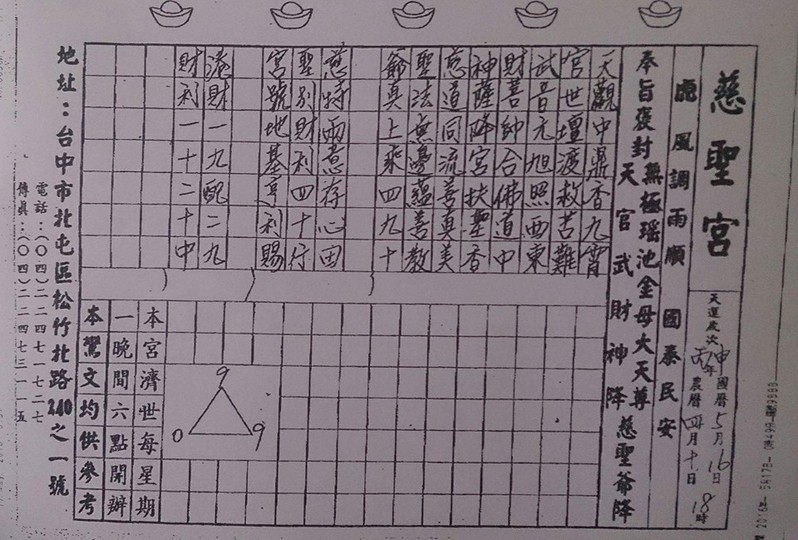 慈聖宮
天運歲次丙申年 國曆5月16日18時
農曆四月十日
慶風調雨順 國泰民安
奉旨褒封 無極瑤池金母大天尊 慈聖爺降
天官武財神降
天觀中鼎香九霄
官世壇渡救苦難
武音元旭照西東
財菩帥合佛道中
神薩降宮扶聖香
慈道同流善真美
聖法無邊蘊善教
爺真上乘四九十
慈特雨意存心田
聖別財利四十行
宮號地基亨利賜
港財一九配二九
財利一十二十中
9
0
9
本宮濟世每星期
一晚間六點開辦
本鸞文均供參考
地址：台中市北屯區松竹北路240之一號
電話：(〇四)二二四七一七二七
傳真：(〇四)二二四七三一一五
2016年- 5月17日-
9888